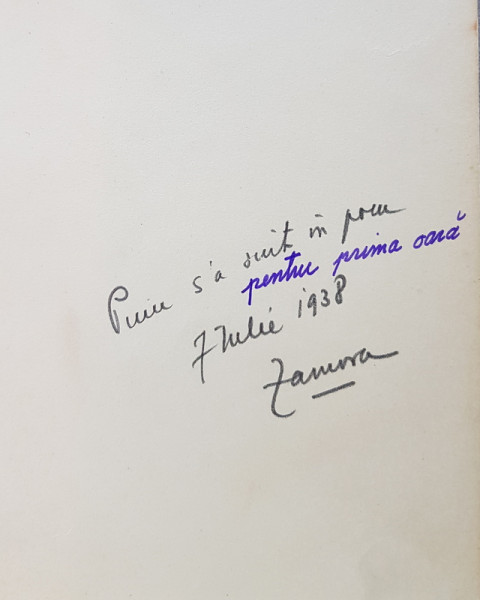 Puiu s'a suit în pom
pentru prima oară
7 Iulie 1938
Zamora